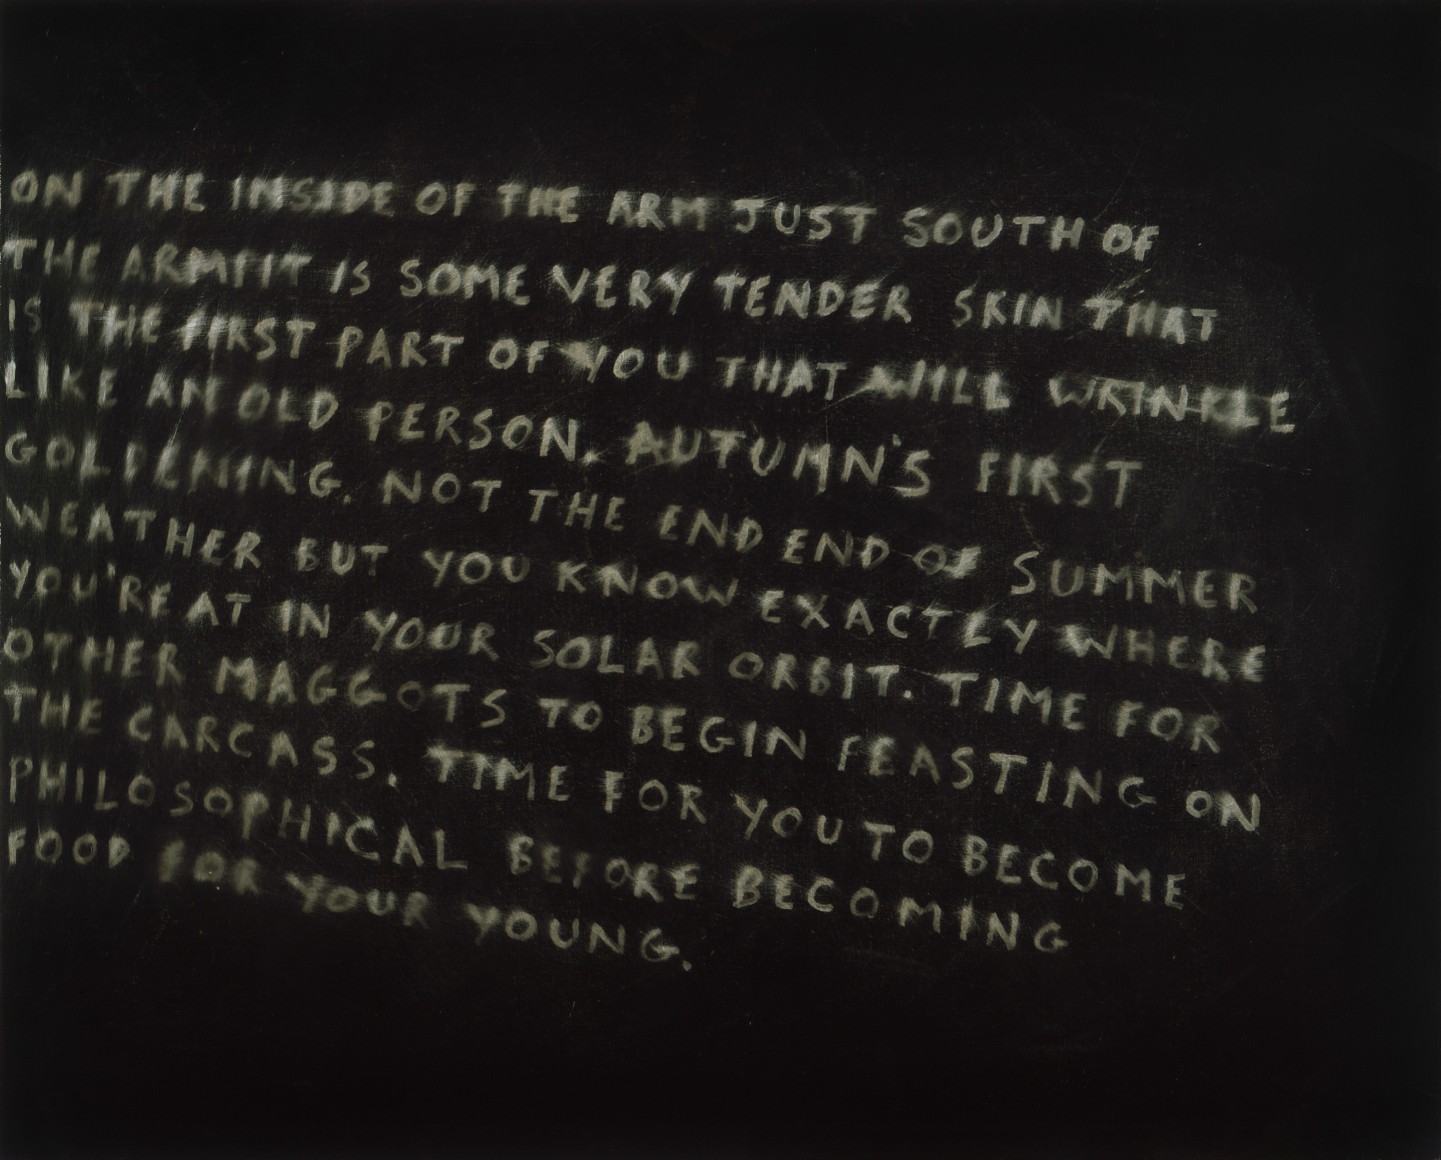 ON THE INSIDE OF THE ARM JUST SOUTH OF
THE ARMPIT IS SOME VERY TENDER SKIN THAT
IS THE FIRST PART OF YOU THAT WILL WRINKLE
LIKE AN OLD PERSON. AUTUMN'S FIRST
GOLDENING. NOT THE END END OF SUMMER
WEATHER BUT YOU KNOW EXACTLY WHERE
YOU'RE AT IN YOUR SOLAR ORBIT. TIME FOR
OTHER MAGGOTS TO BEGIN FEASTING ON
THE CARCASS. TIME FOR YOU TO BECOME
PHILOSOPHICAL BEFORE BECOMING
FOOD FOR YOUR YOUNG.